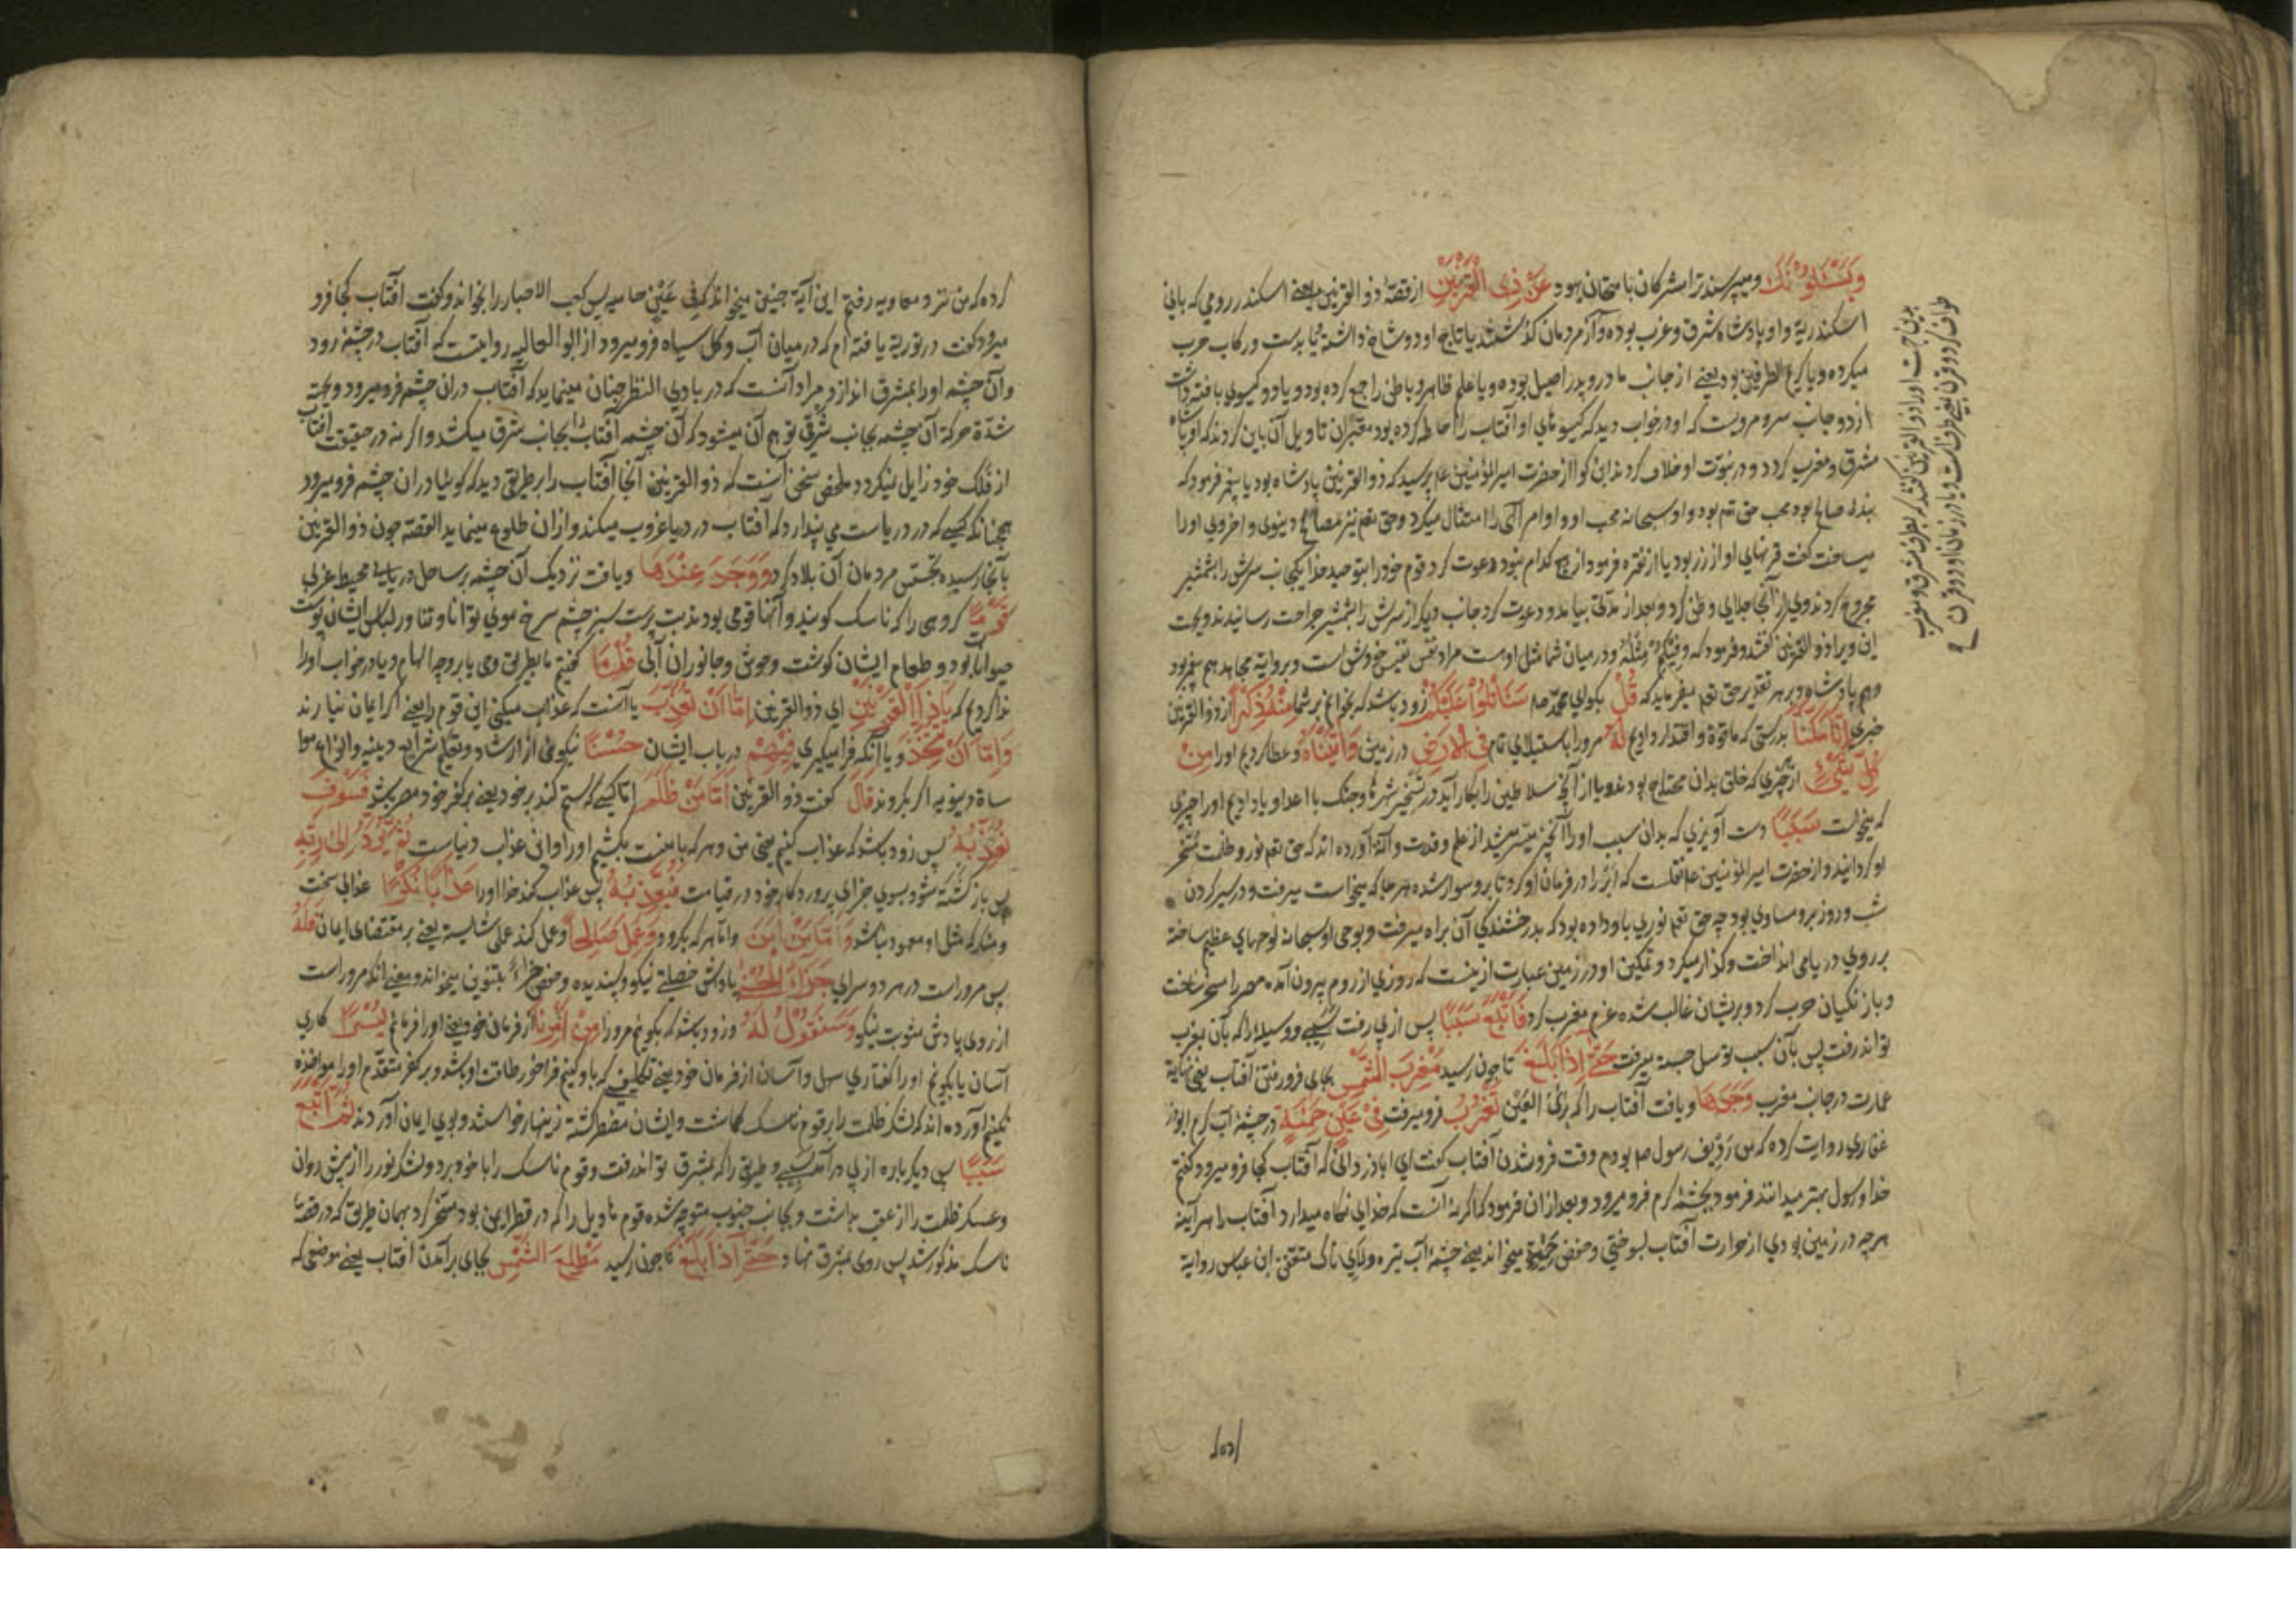 وَيَسْئَلُونَكَ ومیپرسند ترا مشرکان بامتحان یهود عَنْ ذِی الْقَرْنَیْنِ از قصهٔ ذو القرنین یعنے اسکندر رومی که بانی
اسکندریة واو پادشاه شرق وغرب بوده واز مردمان گذشتند یا تاج او دو شاخ داشته یا بدست ورکاب حرب
میکرده ویا کریم الطرفین بود یعنے از جانب مادر وپدر اصیل بوده ویا علم ظاهر وباطن را جمع کرده بود ویا دو کیسوی بافته داشت
از دو جانب سر ومرویست که او در خواب دید که کیسوهای او آفتاب را احاطه کرده بود معبران تاویل آن باین کردند که او پادشاه
مشرق ومغرب کردد ودر نبوّت او خلاف کردند ابن کوا از حضرت امیر المؤمنین عم پرسید که ذو القرنین پادشاه بود یا پیغمبر فرمود که
بندهٔ صالح بود محب حق تعم بود واو سبحانه محب او واوامر آلهی را امتثال میکرد وحق تعم نیز مصالح دینوی واخروی او را
میساخت گفت قرنهای او از زر بود یا از نقره فرمود از هیچ کدام نبود دعوت کرد قوم خود را بتوحید خدا یکجانب سرش را بشمشیر
مجروح کردند وی از آنجا جلای وطن کرد وبعد از مدّتی بیامد ودعوت کرد جانب دیکر از سرش را بشمشیر جراحت رسانیدند وبجهت
این ویرا ذو القرنین گفتند وفرمود که وفیکم مثله ودر میان شما مثل اوست مراد نفس نفیس خودش است وبروایة مجاهد هم پیغمبر بود
وهم پادشاه وبر هر تقدیر حق تعم میفرماید که قُلْ بکو ای محمّد صلم سَاَتْلُوا عَلَیْکُمْ زود باشد که بخوانم بر شما مِنْهُ ذِکْرًا از ذو القرنین
خبری اِنَّا مَکَّنَّا بدرستی که ما قوّة واقتدار دادیم لَهُ مر ورا باستیلای تام فِی الْاَرْضِ در زمین وَاٰتَیْنَاهُ وعطا کردیم او را مِنْ
کُلِّ شَیْءٍ از چیزی که خلق بدان محتاج بودند ویا از آنچه سلاطین را بکار آید در تسخیر شهرها وجنک با اعدا ویا دادیم او را چیزی
که میخواست سَبَبًا دست آویزی که بدان سبب او را آنچیز میسّر میشد از علم وقدرت وآلة آورده اند که حق تعم نور وظلمت مسخّر
او کردانید واز حضرت امیر المؤمنین عم نقلست که ابر را در فرمان او کرد تا برو سوار شده هر جا که میخواست میرفت ودر سیر کردن
شب وروز برو مساوی بود چه حق تعم نوری باو داده بود که بدرخشندکی آن براه میرفت وبوحی او سبحانه لوحهای عظیم ساخته
بر روی دریا می انداخت وکذار میکرد وتمکین او در زمین عبارت از اینست که روزی از روم بیرون آمده مصر را مسخر ساخت
وبا زنکیان حرب کرد وبریشان غالب شده عزم مغرب کرد فَاَتْبَعَ سَبَبًا پس از پی رفت سببے ووسیلهٔ را که بآن بغرب
تواند رفت پس بآن سبب توسل جسته میرفت حَتّٰی اِذَا بَلَغَ تا چون رسید مَغْرِبَ الشَّمْسِ بجای فرو رفتن آفتاب یعنی نهایة
عمارت در جانب مغرب وَجَدَهَا ویافت آفتاب را که برئ العین تَغْرُبُ فرو میرفت فِیْ عَیْنٍ حَمِئَةٍ در چشمهٔ آب کرم ابوذر
غفاری روایت کرده که من ردیف رسول صم بودم وقت فرو شدن آفتاب گفت ای اباذر دانی که آفتاب کجا فرو میرود گفتم
خدا ورسول بهتر میدانند فرمود بچشمهٔ کرم فرو میرود وبعد از ان فرمود که اکر نه آنست که خدای نکاه میدارد آفتاب را هر آینه
هر چه در زمین بودی از حرارت آفتاب بسوختی وحفص حَمِئَةٍ میخواند یعنے چشمهٔ آب تیره ولای ناک متعفن ابن عباس روایة
بدین جهت او را ذو القرنین گفتند که بطرف مشرق ومغرب
طواف کرد وقرن بمعنی طرفست ویا در زمان او دو قرن
کرده که من نزد معاویه رفتم این آیة چنین میخواند که فِی عَیْنٍ حامیه پس کعب الاحبار را بخواند وگفت آفتاب کجا فرو
میرود گفت در توریة یافته ام که در میان آب وکل سیاه فرو میرود از ابو العالیه روایتست که آفتاب در چشمه رود
وآن چشمه او را بمشرق اندازد ومراد آنست که در بادی النظر چنان مینماید که آفتاب دران چشمه فرو میرود وبجهة
شدّة حرکة آن چشمه بجانب شرقی توهم آن میشود که آن چشمه آفتاب را بجانب شرق میکشد واکر نه در حقیقت آفتاب
از فلک خود زایل نیکردد وملخص سخن آنست که ذو القرنین آنجا آفتاب را بر طریقی دید که کوئیا دران چشمه فرو میرود
همچنانکه کسیکه در دریاست می پندارد که آفتاب در دریا غروب میکند وازان طلوع مینماید القصه چون ذو القرنین
بآنجا رسیده تجسّس مردمان آن بلاد کرد وَوَجَدَ عِنْدَهَا ویافت نزدیک آن چشمه بر ساحل دریای محیط غربی
قَوْمًا کروهی را که ناسک کویند وآنها قومی بودند بت پرست سبز چشم سرخ موی توانا وتناور لباس ایشان پوست
حیوانات بود وطعام ایشان کوشت وحوش وجانوران آبی قُلْنَا کفتیم ما بطریق وحی یا بروجه الهام ویا در خواب او را
ندا کردیم که یَا ذَا الْقَرْنَیْنِ ای ذو القرنین اِمَّا اَنْ تُعَذِّبَ یا آنست که عذاب میکنی این قوم را یعنے اکر ایمان نیارند
وَاِمَّا اَنْ تَتَّخِذَ ویا آنکه فرا میکیری فِیْهِمْ در باب ایشان حُسْنًا نیکوئی از ارشاد وتعلیم شرایع دینیه وانواع موا
ساة دنیویه اکر بکروند قَالَ کفت ذو القرنین اَمَّا مَنْ ظَلَمَ امّا کسیکه ستم کند بر خود یعنے بر کفر خود مصر باشد فَسَوْفَ
نُعَذِّبُهُ پس زود باشد که عذاب کنیم یعنی من وهر که با منست بکشیم او را واین عذاب دنیاست ثُمَّ یُرَدُّ اِلٰی رَبِّهِ
پس باز کشته شود بسوی جزای پروردکار خود در قیامت فَیُعَذِّبُهُ پس عذاب کند خدا او را عَذَابًا نُکْرًا عذابی سخت
ومنکر که مثل او معهود نباشد وَاَمَّا مَنْ اٰمَنَ وامّا هر که بکرود وَعَمِلَ صَالِحًا وعمل کند عملی شایسته یعنے بر مقتضای ایمان فَلَهُ
پس مر وراست در هر دو سرای جَزَاءً الْحُسْنٰی پاداش خصلتے نیکو وپسندیده وحفص جزاءً بتنوین میخواند ومعنی آنکه مر وراست
از روی پاداش مثوبت نیکو وَسَنَقُوْلُ لَهُ وزود باشد که بکوئیم مر ورا مِنْ اَمْرِنَا از فرمان خود یعنے او را فرمائیم یُسْرًا کاری
آسان یا بکوئیم او را کفتاری سهل وآسان از فرمان خود یعنے تکلیفی که باو کنیم فراخور طاقت او باشد وبر کفر متقدّم او را مواخذه
نکنیم آورده اند که لشکر ظلمت را بر قوم ناسک کماشت وایشان مضطر کشته زینهار خواستند وبوی ایمان آوردند ثُمَّ اَتْبَعَ
سَبَبًا پس دیکر باره از پی در آمد سببے وطریقی را که بمشرق تواند رفت وقوم ناسک را با خود برد ولشکر نور را از پیش روان
وعسکر ظلمت را از عقب بداشت وبجانب جنوب متوجّه شده قوم هاویل را که در قطر ایمن بود مسخّر کرد بهمان طریق که در قصهٔ
ناسک مذکور شد پس روی بمشرق نهاد حَتّٰی اِذَا بَلَغَ تا چون رسید مَطْلِعَ الشَّمْسِ بجای برآمدن آفتاب یعنے موضعی که